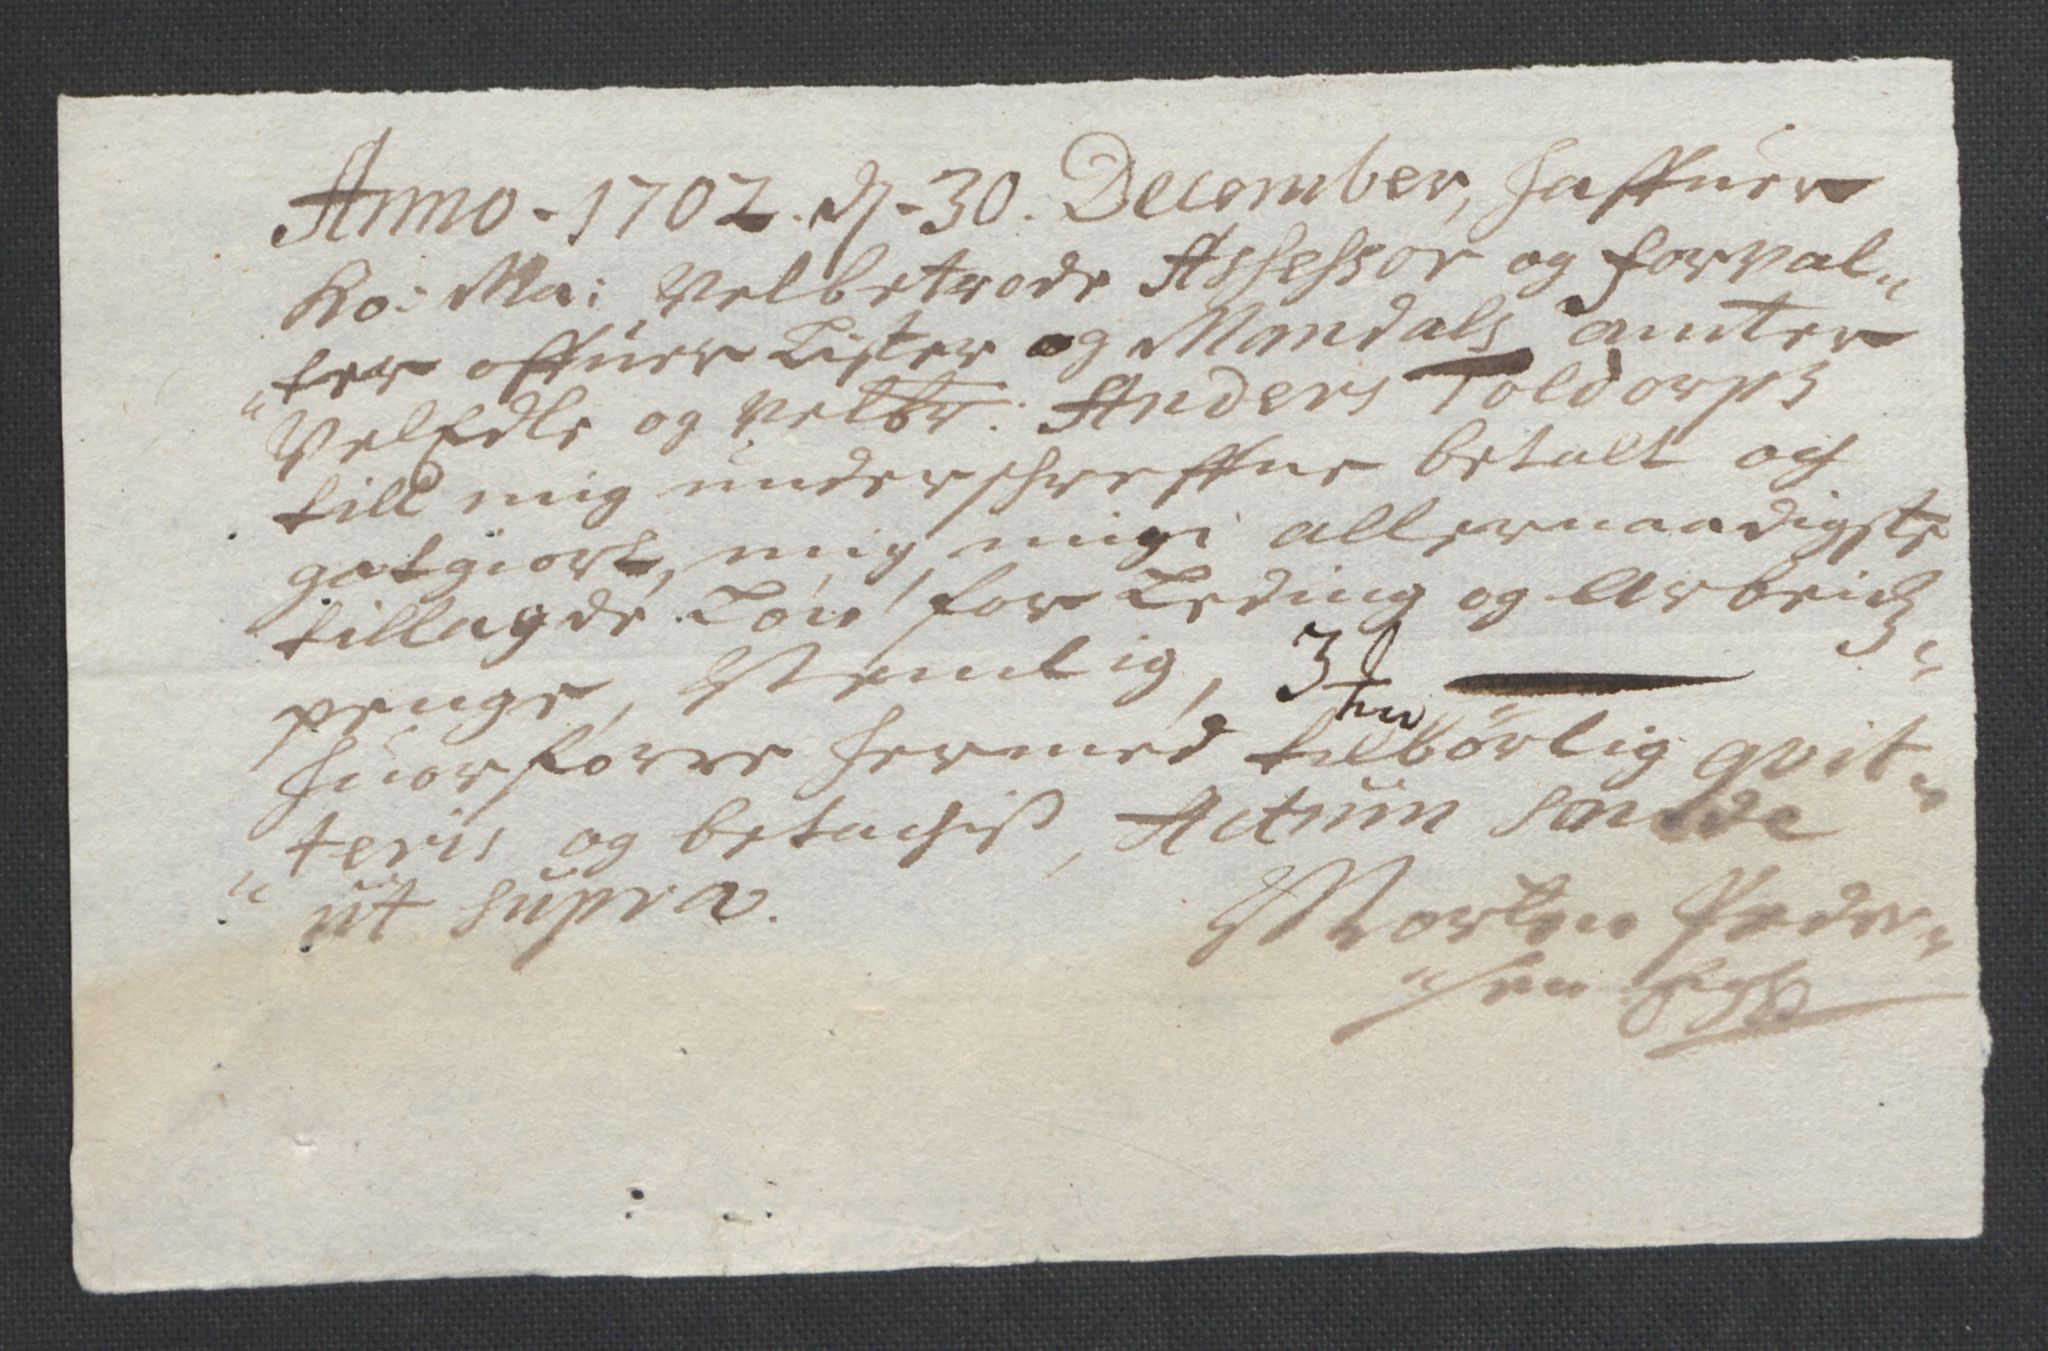 Anno - 1702. d - 30. December, haffuer
Ko: Ma: Velbetrode Assessor og forval„
„ter offuer Lister og Mandals amter
VelEdle og velbr: Anders Toldorph
till mig underschreffne betalt og
gotgiort, mig, allernaadigste
tillagde Løn, for Leding og Arbeidz„
penge, Nemlig, 3
huorforre hermed tilbørlig qvit„
„teris og betachis, Actum
ut supra.
Morten Peder„
„sen